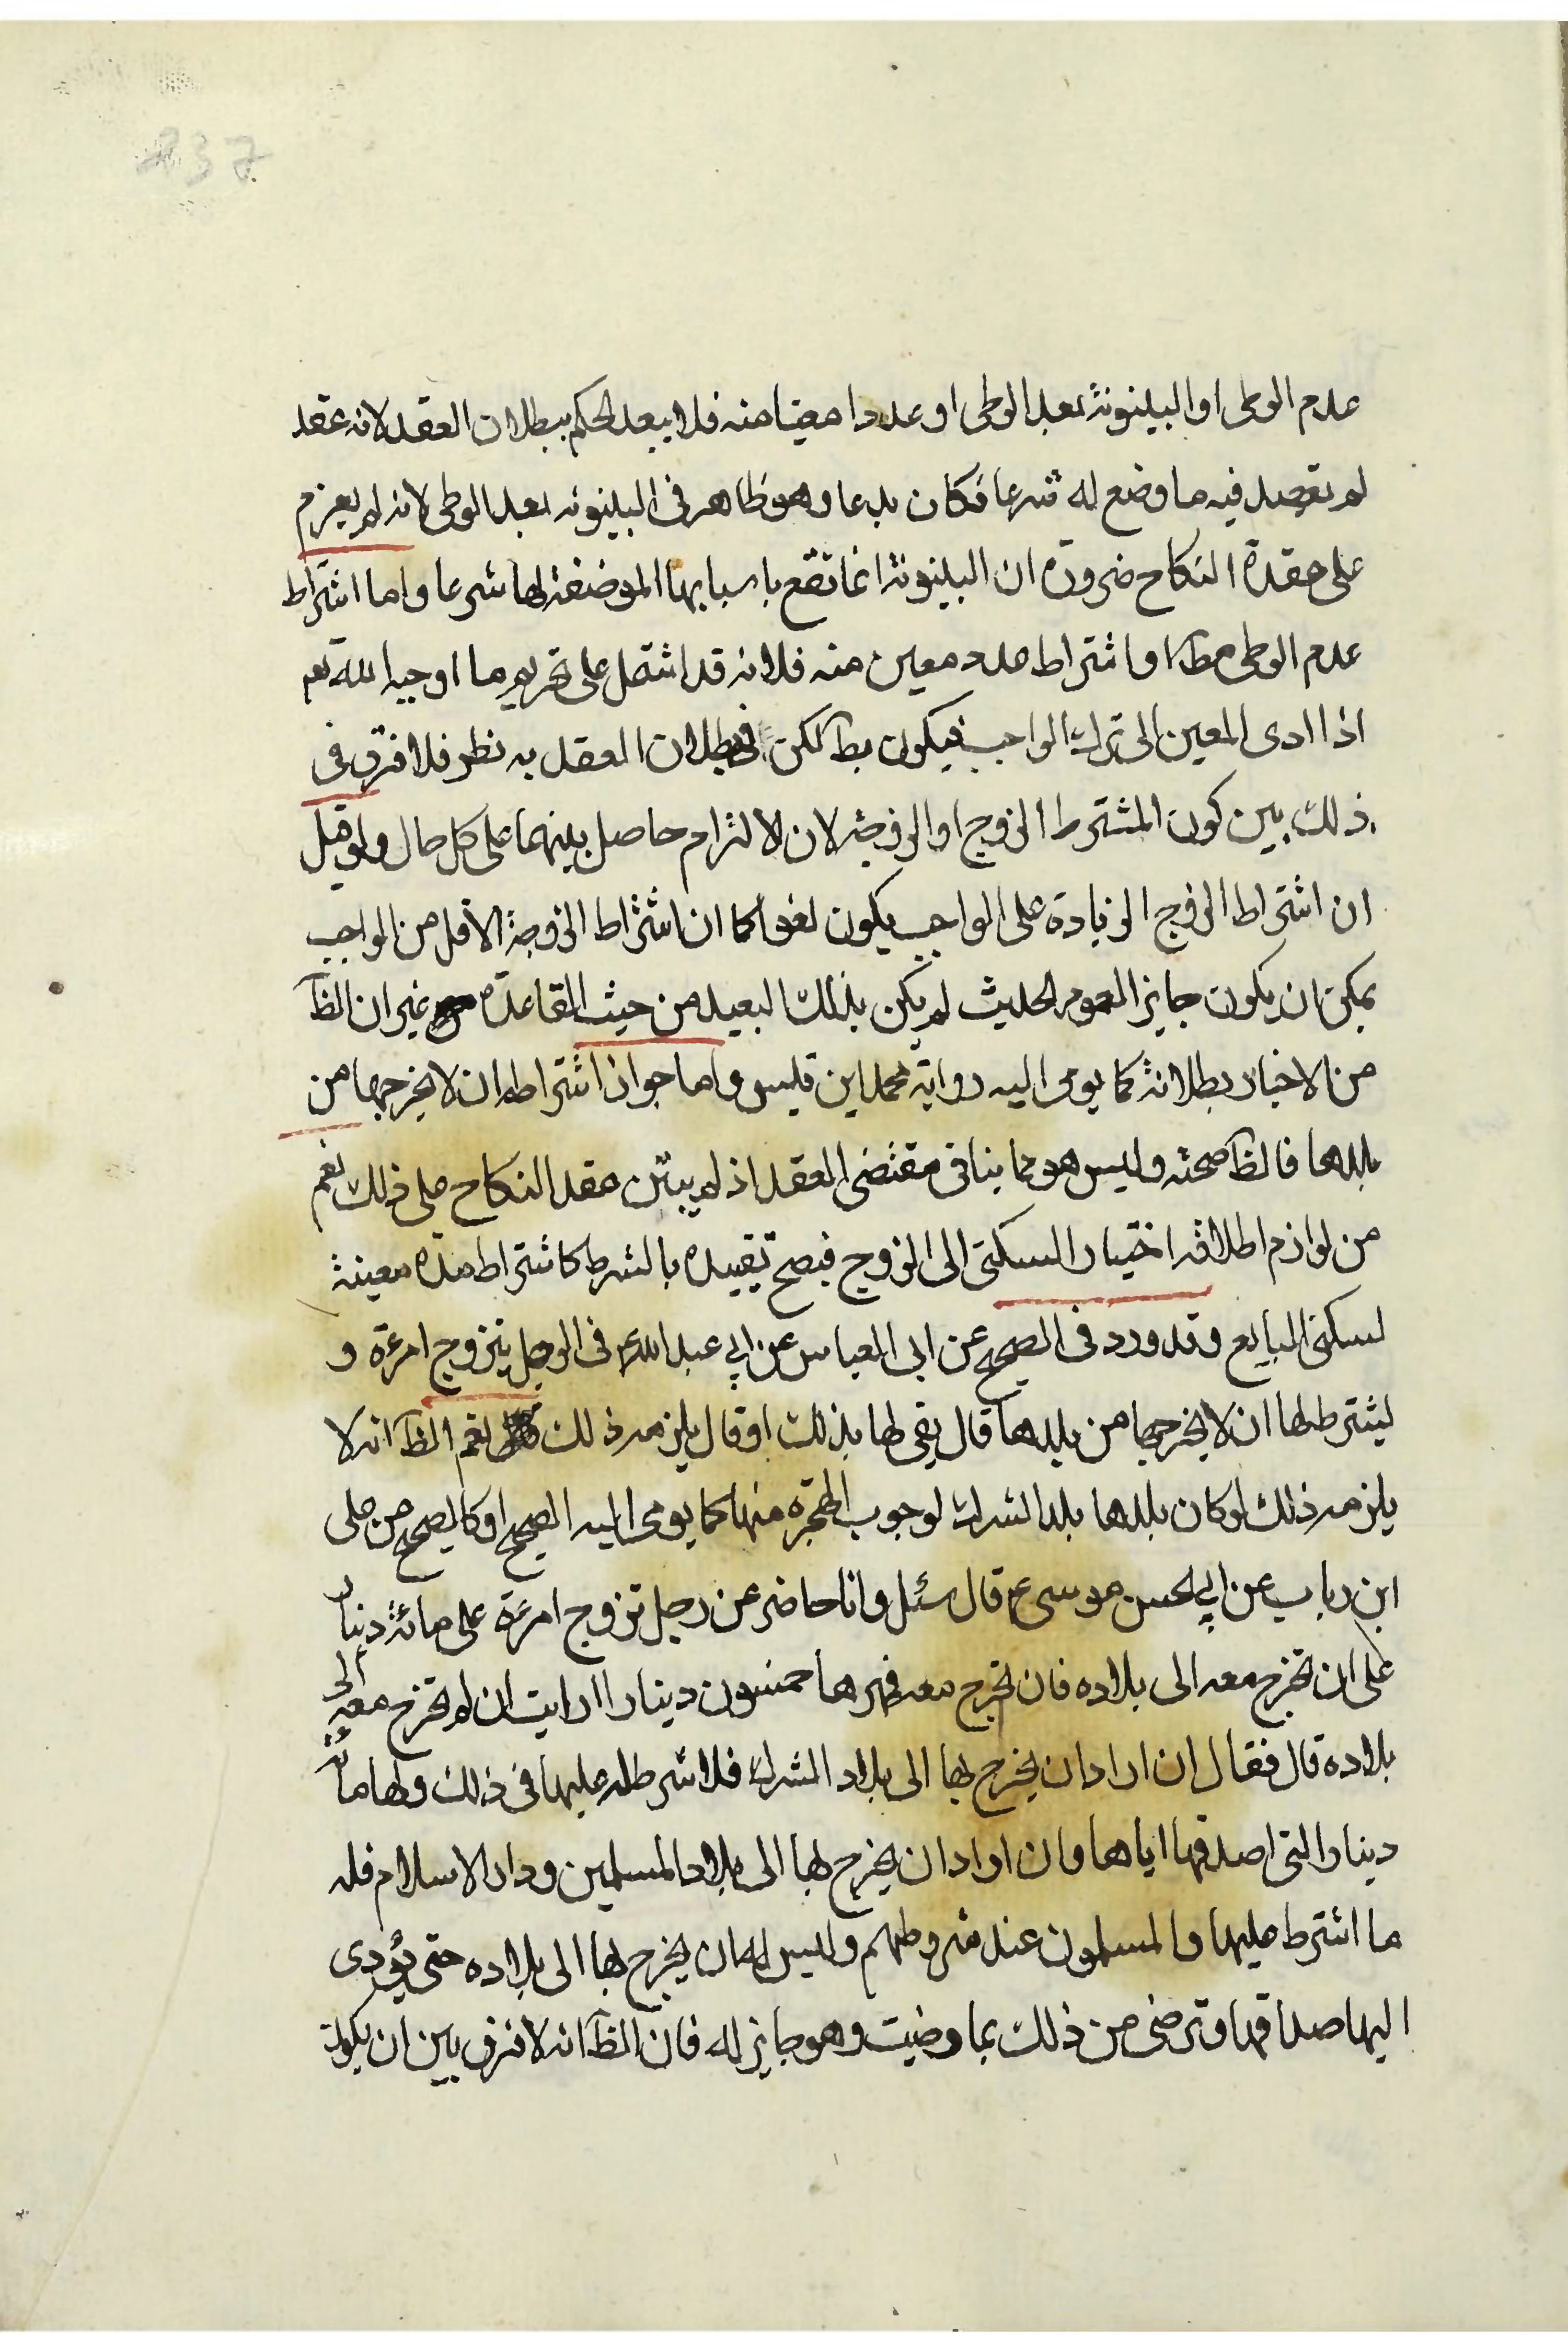 237
عدم الوطى او البينونة بعد الوطى او عددا معينا منه فلا يبعد الحكم ببطلان العقد لانه عقد
لم يقصد فيه ما وضع له شرعا فكان بدعا وهو ظاهر فى البينونه بعد الوطى لانه لم يعزم
على عقدة النكاح ضرورة ان البينونة انما تقع باسبابها الموضفة لها شرعا واما اشتراط
عدم الوطى مط او اشتراط عدد معين منه فلانه قد اشتمل على تحريم ما اوجبه الله تعم
اذا ادى المعين الى ترك الواجب فيكون بط لكن فى بطلان العقد به نظر فلا فرق فى
ذلك بين كون المشترط الزوج او الزوجة لان الالتزام حاصل بينهما على كل حال ولو قيل
ان اشتراط الزوج الزيادة على الواجب يكون لغوا كما ان اشتراط الزوجة الاقل من الواجب
يمكن ان يكون جايز العموم الحديث لم يكن بذلك البعيد من حيث القاعدة غير ان الظ
من الاخبار بطلانه كما يومى اليه رواية محمد ابن قيس واما جواز اشتراط ان لا يخرجها من
بلدها فالظ صحته وليس هو مما ينافى مقتضى العقد اذ لم يبتن عقد النكاح على ذلك نعم
من لوازم اطلاقه اختيار السكنى الى الزوج فيصح تقييده بالشرط كاشتراط مدة معينة
لسكنى البايع وقد ورد فى الصحيح عن ابى العباس عن ابي عبد الله ع فى الرجل يتزوج امرءة و
يشترط لها ان لا يخرجها من بلدها قال يفى لها بذلك او قال يلزمه ذلك نعم الظ انه لا
يلزمه ذلك لو كان بلدها بلد الشرك لوجوب الهجره منها كما يومى اليه الصحيح او كالصحيح عن على
ابن رباب عن ابي الحسن موسى ع قال سئل وانا حاضر عن رجل تزوج امرءة على مائة دينار
على ان تخرج معه الى بلاده فان لم تخرج معه فمهرها خمسون دينارا ارايت ان لم تخرج معه الى
بلاده قال فقال ان اراد ان يخرج بها الى بلاد الشرك فلا شرط له عليها فى ذلك ولها مائة
دينار التى اصدقها اياها وان اراد ان يخرج بها الى بلاد المسلمين ودار الاسلام فله
ما اشترط عليها والمسلمون عند شروطهم وليس له ان يخرج بها الى بلاده حتى يؤدى
اليها صداقها او ترضى من ذلك بما رضيت وهو جايز له فان الظ انه لا فرق بين ان يكون